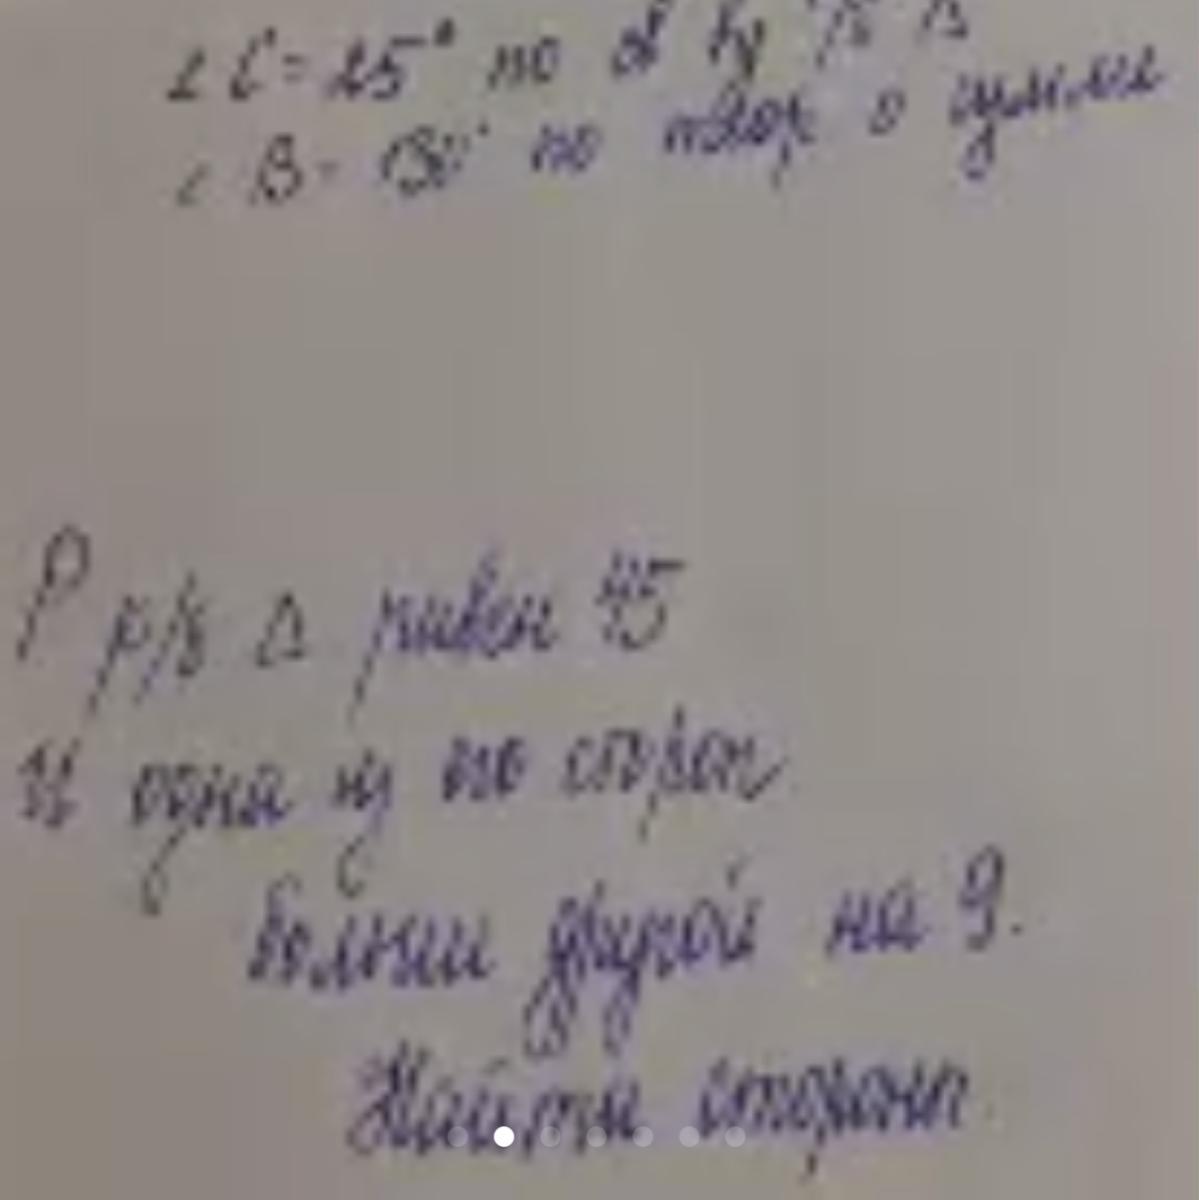 ∠C = 25° по св р/б Δ
∠B = 130° по теор о сумме
P р/б Δ равен 45
и одна из его сторон
больше другой на 9.
Найти стороны